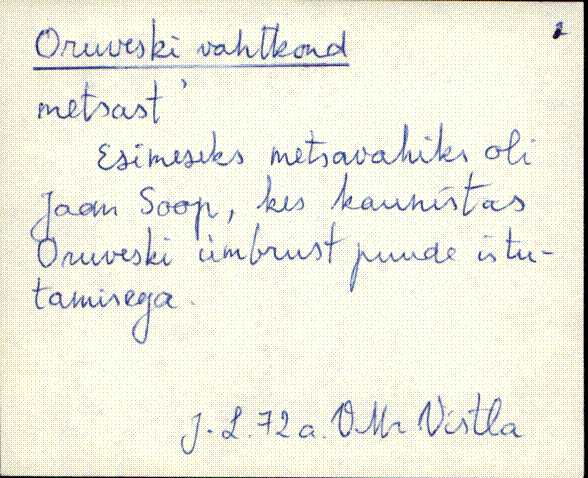 2
Oruveski vahtkond
metsast'
Esimeseks metsavahiks oli
Jaan Soop, kes kaunistas
Oruveski ümbrust puude istu-
tamisega.
J. L. 72 a. VMr Vistla